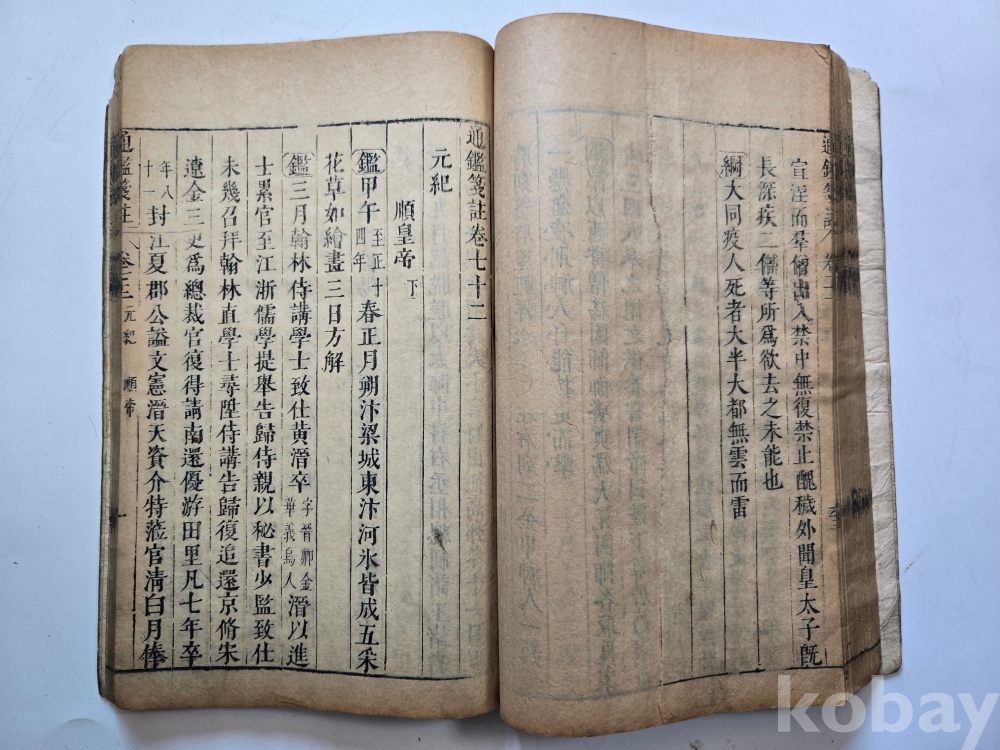 宣淫而羣僧出入禁中無復禁止醜穢外聞皇太子旣
長深疾二僧等所爲欲去之未能也
綱大同疫人死者大半大都無雲而雷
通鑑箋註卷七十二
元紀
順皇帝下
鑑甲午至正十四年春正月朔汴梁城東汴河氷皆成五采
花草如繪畫三日方解
鑑三月翰林侍講學士致仕黃溍卒字晉卿金華義烏人溍以進
士累官至江浙儒學提舉告歸侍親以秘書少監致仕
未幾召拜翰林直學士尋陞侍講告歸復追還京脩宋
遼金三史爲總裁官復得請南還優游田里凡七年卒
年八十一封江夏郡公謚文憲溍天資介特蒞官淸白月俸
通鑑箋註
元紀
順帝
一
kobay